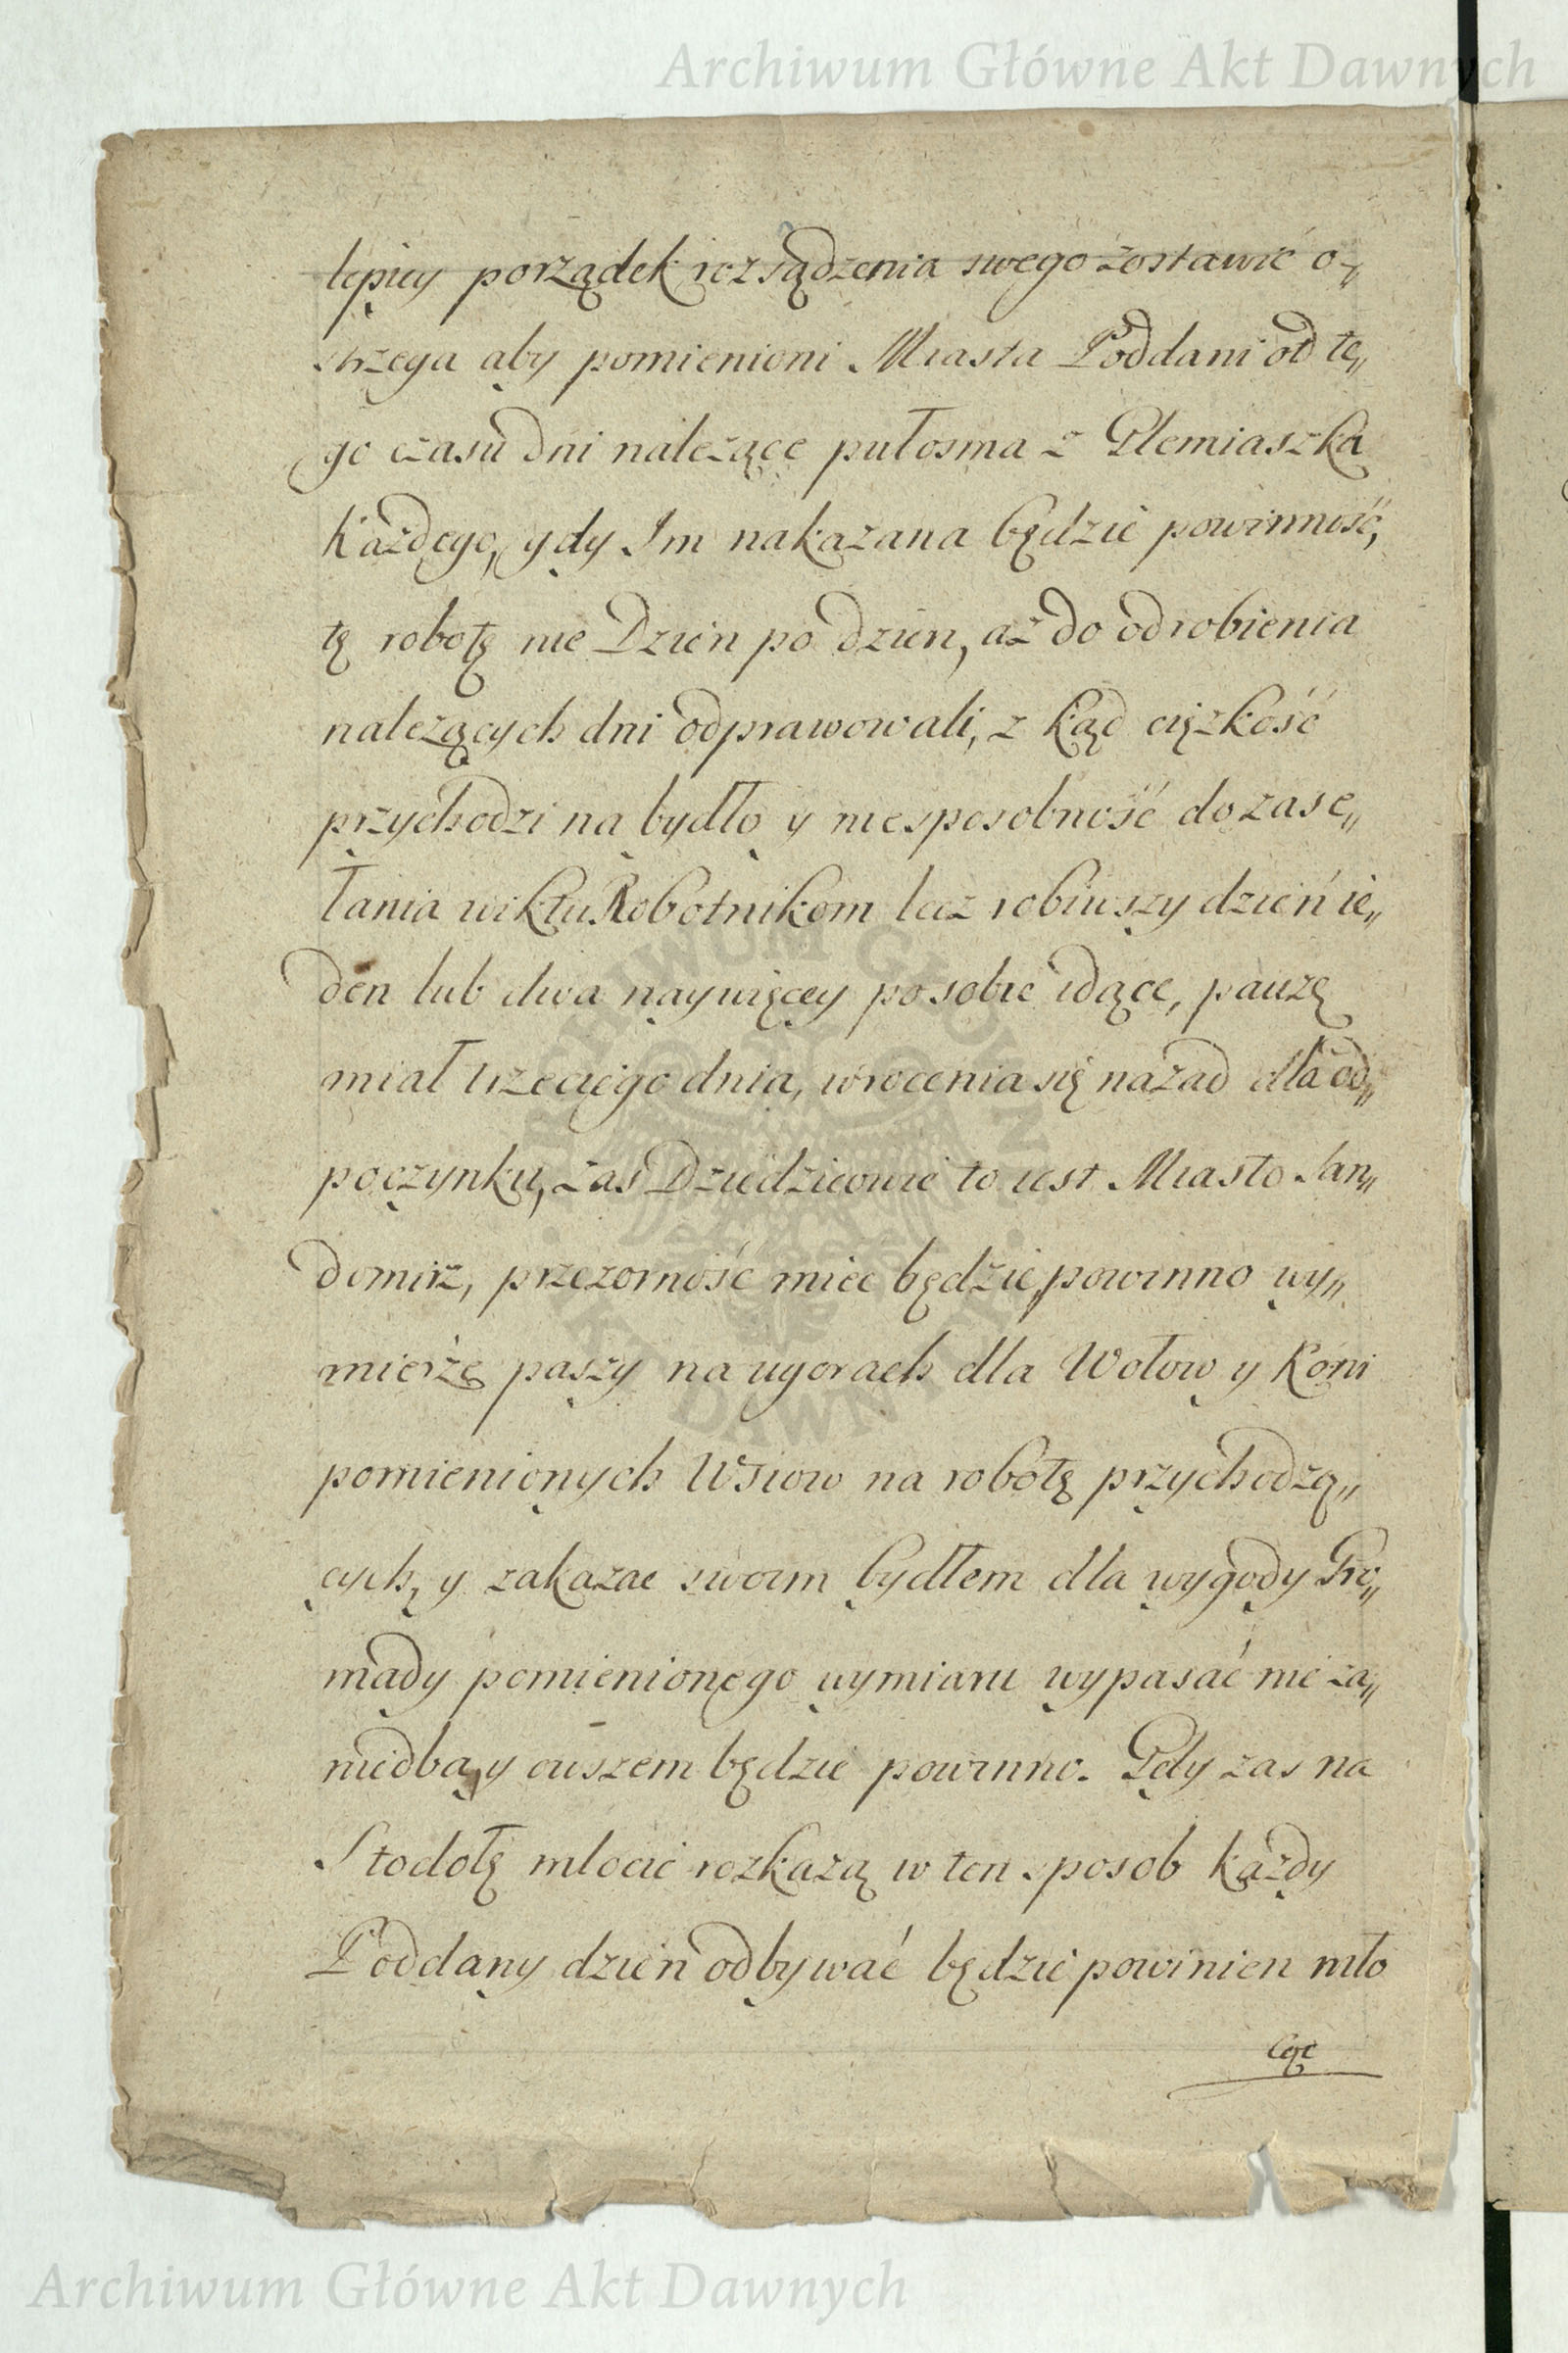 Archiwum Główne Akt Dawnych
lepiey porządek rozsądzenia swego zostawić o„
strzega aby pomienioni Miasta Poddani od te„
go czasu dni należące pułosma z Plemiaszka
Każdego, gdy Im nakazana będzie powinność,
tę robotę nie Dzień po dzien, aż do odrobienia
należących dni odprawowali, z kąd ciężkość
przychodzi na bydło y niesposobność do zase„
łania wiktu Robotnikom lecz robiwszy dzień ie„
den lub dwa naywięcey po sobie idące, pauzę
miał trzeciego dnia, wrocenia się nazad dla od„
poczynku, zas Dziedzicowie to iest Miasto San„
domirz, przezorność miec będzie powinno wy„
mierzę paszy na ugorach dla Wołow y Koni
pomienionych Wsiow na robotę przychodzą„
cych, y zakazac swoim bydłem dla wygody Gro„
mady pomienionego wymiaru wypasać nie za„
niedba y owszem będzie powinno. Gdy zas na
Stodołę młocić rozkażą w ten sposob każdy
Poddany dzień odbywać będzie powinien mło
cąc
Archiwum Główne Akt Dawnych